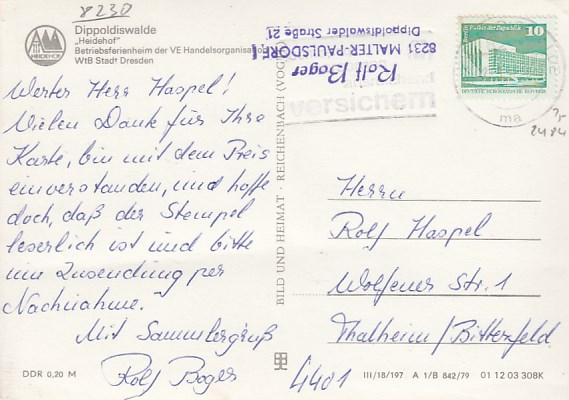 8230
Dippoldiswalde
„Heidehof"
Betriebsferienheim der VE Handelsorganisation
WtB Stadt Dresden
HEIDEHOF
Werter Herr Haspel!
Vielen Dank für Ihre
Karte, bin mit dem Preis
einverstanden, und hoffe
doch, daß der Stempel
leserlich ist und bitte
um Zusendung per
Nachnahme.
Mit Sammlergruß
Rolf Boger
DDR 0,20 M
BILD UND HEIMAT · REICHENBACH (VOGTL)
Rolf Boger
8231 MALTER-PAULSDORF
Dippoldiswalder Straße 21
versichern
Palast der Republik
10
ma
2484
Herrn
Rolf Haspel
Wolfener Str. 1
Thalheim/Bitterfeld
4401
III/18/197 A 1/B 842/79 01 12 03 308K